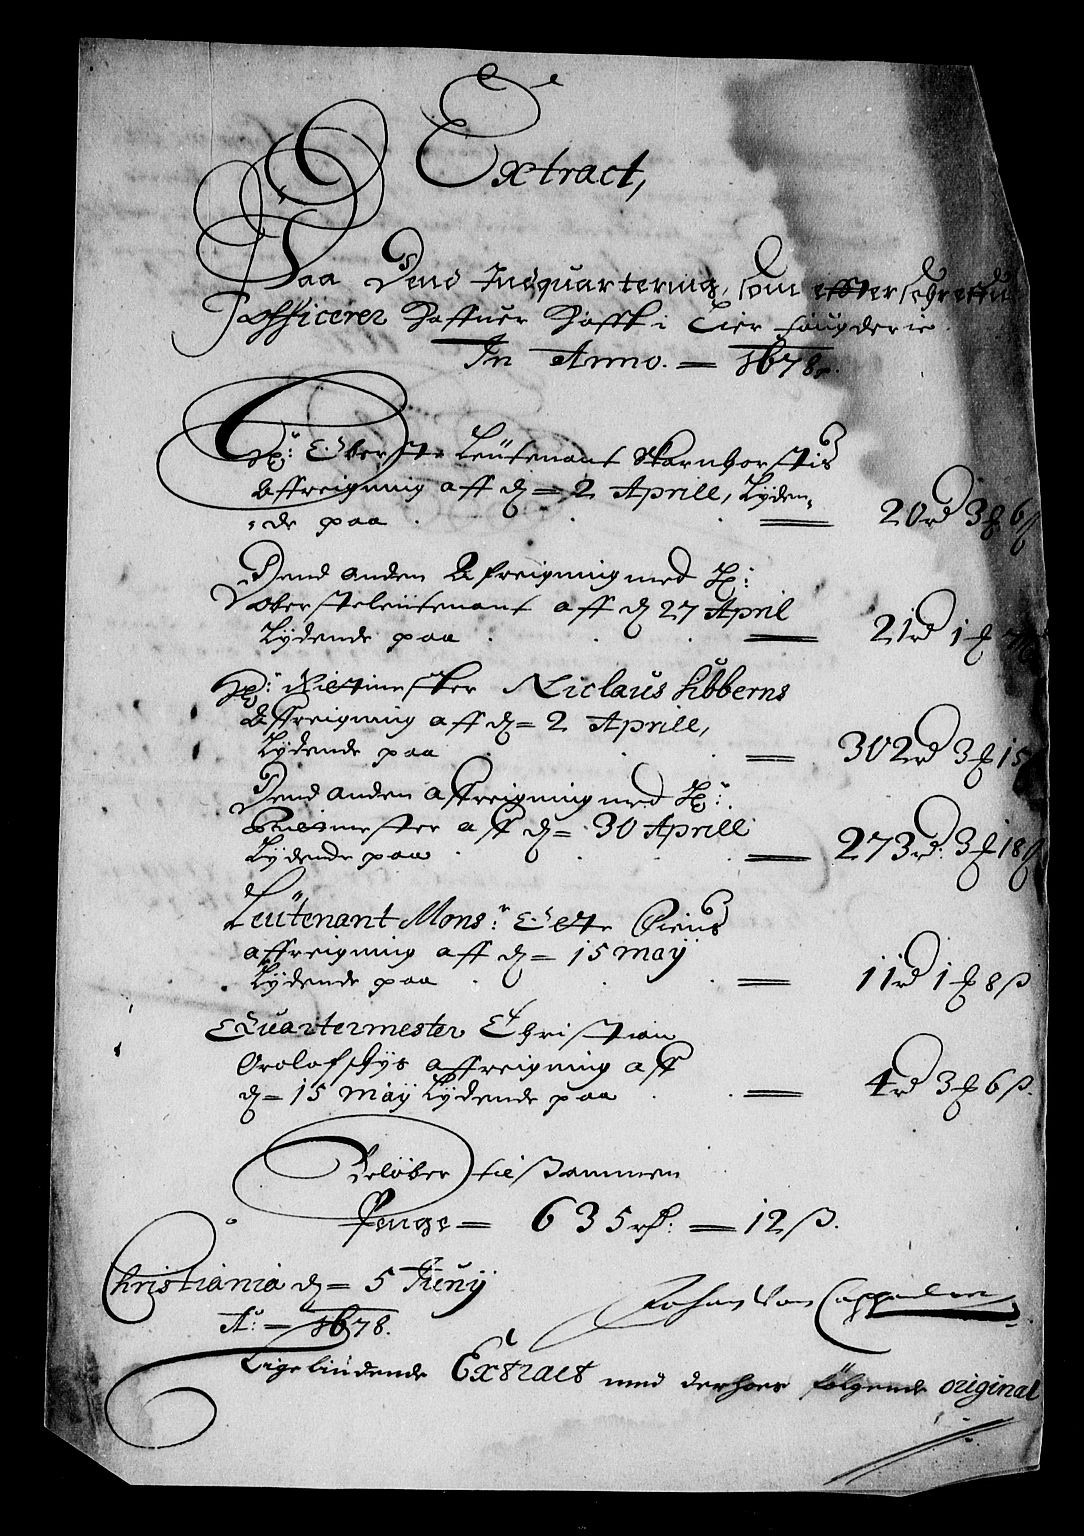 Extract,
Paa Dend Indquartering, som effterschreffne
officerer haffuer hafft i Lier fougderie.
In Anno. = 1678.
Hr: Oberste Leütenant Skarnhorstis
Affreigning aff d = 2 Aprill, Lyden=
=de paa . . . = 20 rd 3 ℔ 6 ß
Dend anden Afreigning med Hr:
Oberstleütenant aff d 27 April
Lydende paa . . . = 21 rd 1 ℔
Hr: Ritmester Niclaus
Affreigning aff d = 2 Aprill,
Lydende paa . . = 302 rd 3 ℔ 15
Dend anden afreigning med Hr:
Ritmester aff d = 30 Aprill
Lydende paa . . . = 273 rd: 3 ℔ 18 ß
Leütenant Monsr:
affreigning aff d = 15 maÿ
Lydende paa . . . = 11 rd 1 ℔ 8 ß
Quartermester Christian
Orolofskÿs affreigning aff
d = 15 Maÿ Lydende paa . . = 4 rd 3 ℔ 6 ß.
Beløber till Sammen
Penge = 635 rd: = 12 ß.
Christiania d = 5 Junÿ
Ao: = 1678.
Johan Von Cappelen
Ligeliudende Extract med derhoes følgende original